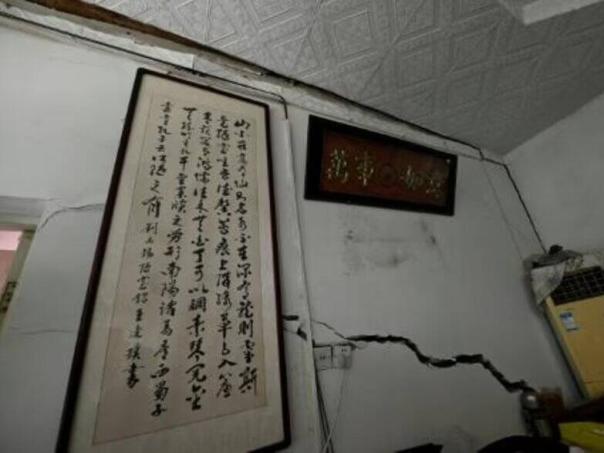 山不在高有仙則名水不在深有龍則靈斯
是陋室惟吾德馨苔痕上階綠草色入簾
青談笑有鴻儒往來無白丁可以調素琴閱金
經無絲竹之亂耳無案牘之勞形南陽諸葛廬西蜀子
雲亭孔子云何陋之有 劉禹錫陋室銘 書
萬事如意